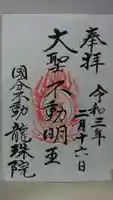 奉拝
令和三年
二月十六日
大聖不動明王
国分不動 龍珠院